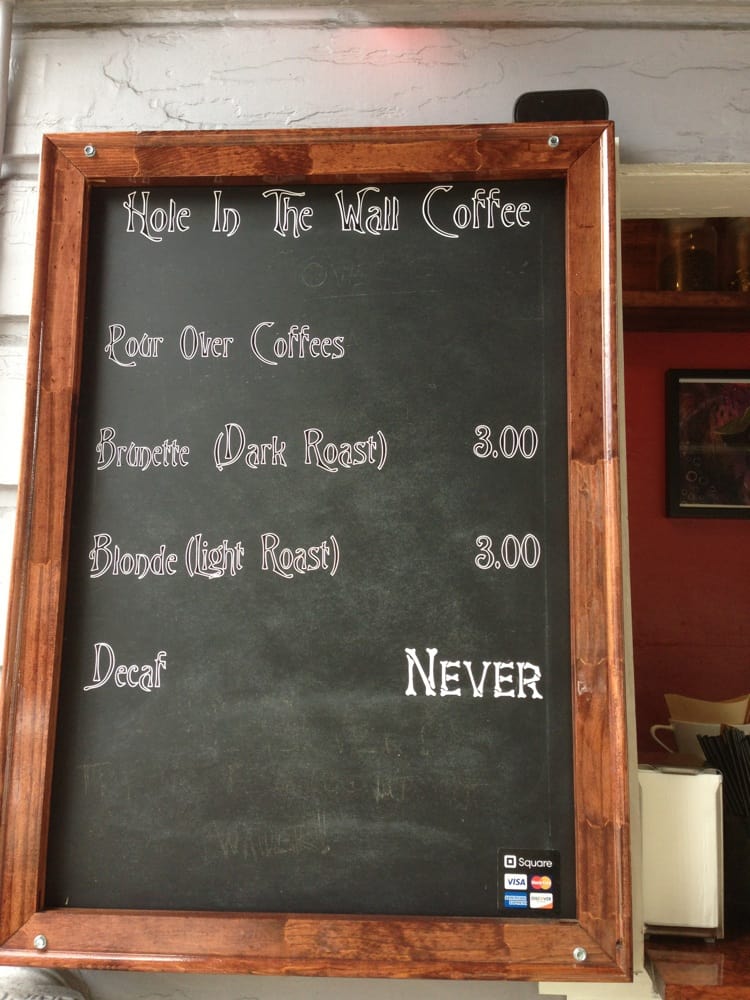 Hole In The Wall Coffee
Pour Over Coffees
Brunette (Dark Roast) 3.00
Blonde (Light Roast) 3.00
Decaf NEVER
Square
VISA MasterCard
AMERICAN EXPRESS DISCOVER